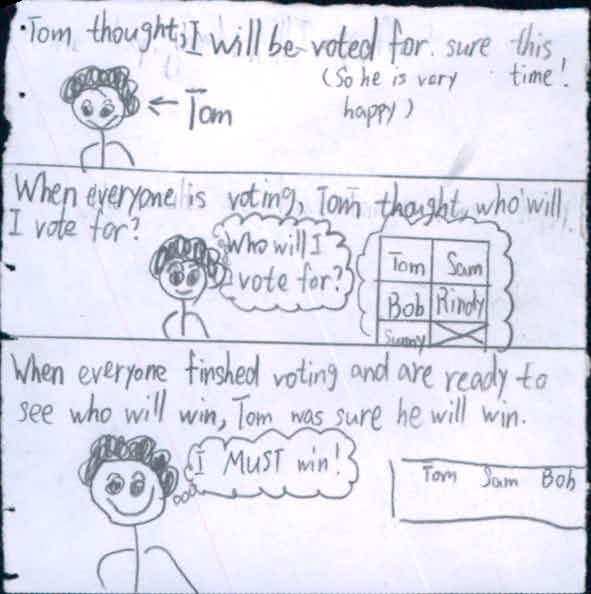 Tom thought, I will be voted for sure this time!
(So he is very happy)
← Tom
When everyone is voting, Tom thought, who will
I vote for?
Who will I
vote for?
Tom Sam
Bob Rindy
Sunny
When everyone finshed voting and are ready to
see who will win, Tom was sure he will win.
I MUST win!
Tom Sam Bob